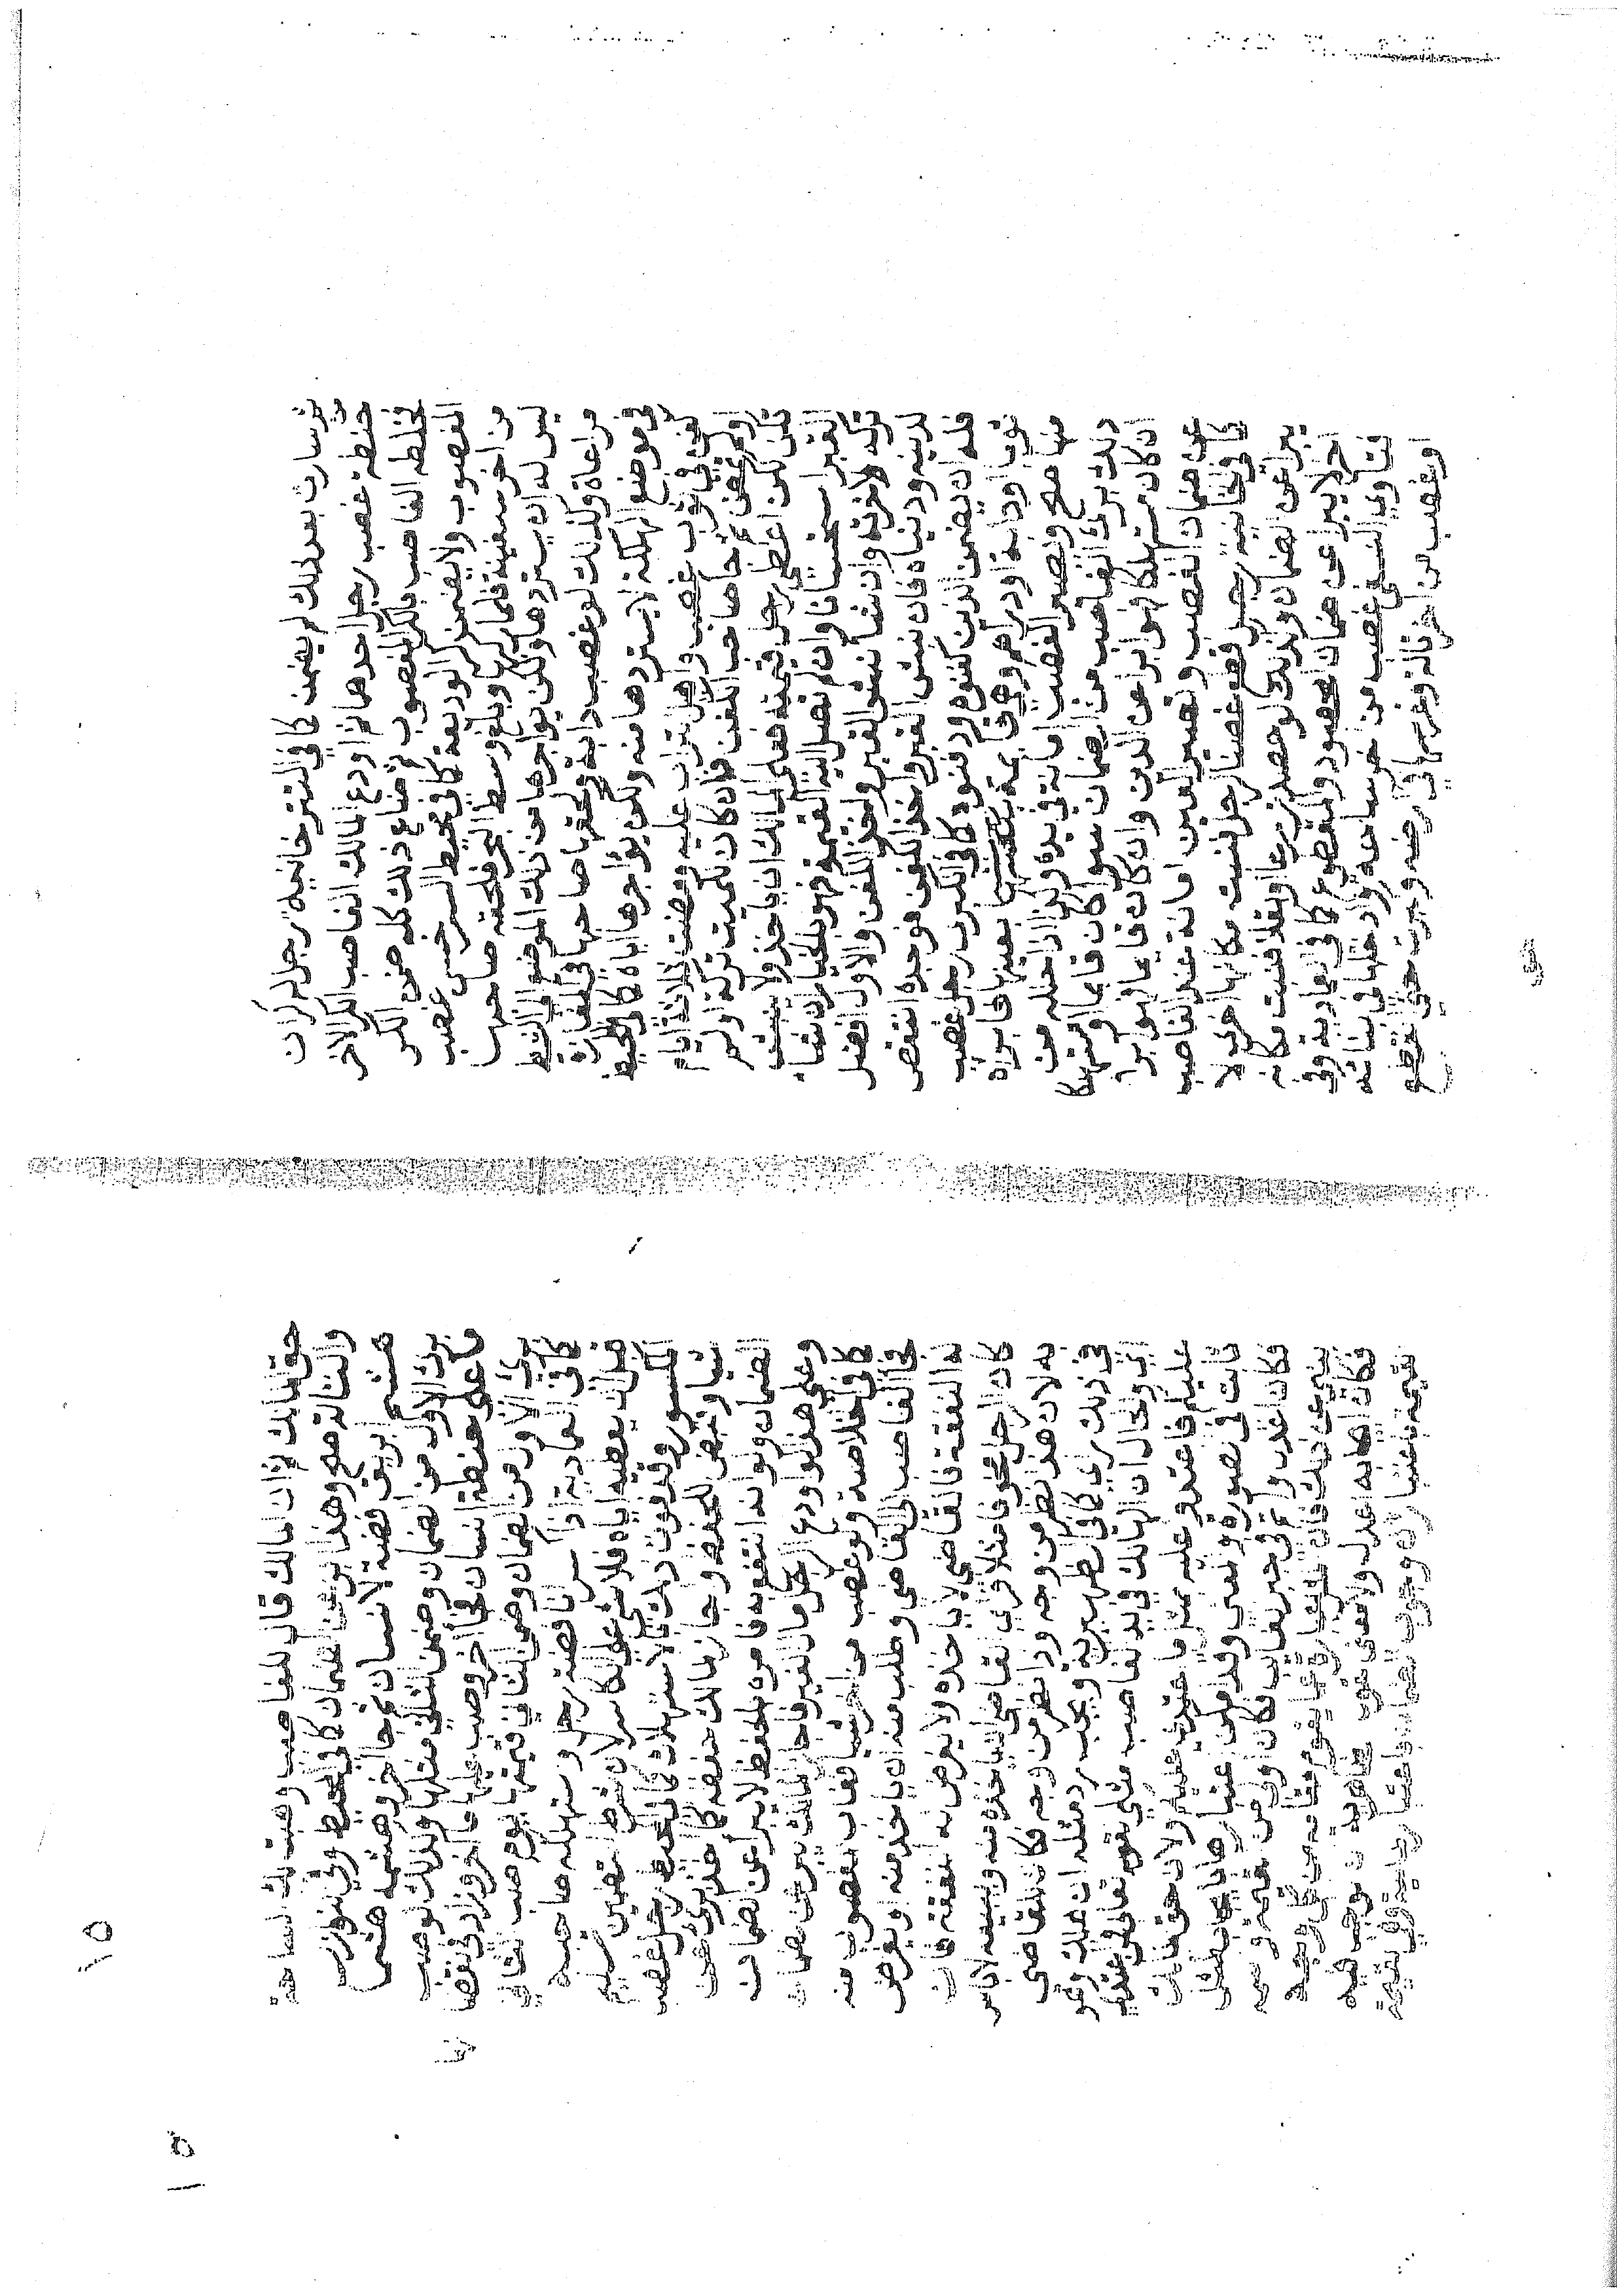 ثم سارت بعد ذلك لم يضمن كما في التترخانية رجل له كران
حنطة غصب رجل احدهما ثم اودع المالك الغاصب الكر الاخر
فخلطه الغاصب بالكر المغصوب ثم ضاع ذلك كله ضمن الكر
المغصوب ولا يضمن كر الوديعة كما في محيط السرخسي غصب
من اخر سفينة فلما ركبها وبلغ وسط البحر فلحقه صاحبها
ليس له ان يستردها ولكن يواجرها من ذلك الموضع الى الشط
مراعاة وكذلك لو غصب دابة ولحقها صاحبها في المفازة
في موضع الهلكة لا يستردها منه ولكن يواجرها اياه كما في المحيط
كفن في ثوب غصب واهل تراب عليه ومضت ثلاثة ايام
اولم تمض ثم جا صاحب الكفن فان كان للميت تركة او لم
تكن لكن اعطى رجل قيمته فعلى المالك ان ياخذ ولا ينبش
القبر استحسانا وان لم تصل اليه القيمة فهو بالخيار ان شاء
تركه لاخرته وان شا نبش القبر واخذ الكفن والاول افضل
لدينه ودنياه فان نبش القبر واخذ الكفن فوجده انتقص
فله ان يضمن الذين كفنوه ودفنوه كما في الكبرى رجل غصب
ثوبا او دابة او دراهم وهي قائمة بعينها فابراه
منها صح وتصير الغصب امانة في يده وكذا اذا حلله من
ذلك يبرئ الغاصب من الضمان سوا كان قايما او مستهلكا
ان كان مستهلكا فهو ابرا عن الدين وان كان قايما فهو ابرا
عن ضمان الغصب وتصير العين امانة عند الغاصب
كما في الخانية رجل قطع غصنا لرجل فنبت مكانها اخرى لا
يبرا عن الضمان وكذلك لو حصد زرعا او بقلا فنبت مكانه
اخر لا يبرا عن ضمان المحصود والمقطوع كما في العمادية وفي
فتاوي النسفي غصب من اخر ساحة وادخلها في بنائه
او غصب من اخر تالة وغرسها في ارضه وكبرت حتى انقطع
حق المالك ثم ان المالك قال للغاصب وهبت لك الساحة
والتالة صح وهذا ابرا عن الضمان كما في المحيط وفي النوازل
هشم ابريق فضة لانسان ثم جا اخر وهشمه هشما
برئ الاول من الضمان وضمن الثاني مثلها وكذلك لو صب
ماء على حنطة انسان ثم جا اخر وصب عليها ماء اخر وزاد في النقصا
برئ الاول من الضمان وضمن الثاني قيمتها يوم صب الثاني
كما في العمادية اذا كسر انا فضة رجل واستهلكه صاحبه
قبل ان يعطيه اياه فلا شي على الكاسر لان شرط التضمين تسليم
المكسور وقد فوت ذلك بالاستهلاك كما في المحيط رجل غصب
شيا وقبض للحفظ واجاز المالك قبضه كما اخذ برئ من
الضمان ولو انتفع به فامره بالحفظ لا يبرا عن الضمان
وعلى هذا لو اودع الرجل مال الغير فاجاز المالك برئ عن الضمان
كما في الخلاصة ولو غصب من اخر شيا فغاب المغصوب منه
فجا الغاصب الى القاضي وطلب منه ان ياخذ منه او يفرض
له النفقة فالقاضي لا ياخذه ولا يفرض له النفقة فان
كان الرجل مخوفا فراى القاضي ان ياخذه منه ويبيعه لا باس
به لان هذا نظر من وجه وذا نظر من وجه فكان للقاضي
في ذلك راي كما في الظهيرية ويجب رد مثله ان هلك وهو
اي والحال ان الهالك في يد الغاصب مثلي لقوله تعالى فمن اعتدى
عليكم فاعتدوا عليه بمثل ما اعتدى عليكم ولان حق المالك
ثابت في الصورة والمعنى وقد امكن اعتبارهما بايجاب المثل
فكان اعدل واتم في جبر الفايت فكان اولى من القيمة
ينبئ عن ذلك فان المثل عبارة عما يقوم مقامه من كل وجه
فكان ايجابه اعدل ولا معنى لقول الظاهرية ان الواجب فيه
القيمة باعتبار ان وجوب الضمان باعتبار المالية وهي القيمة